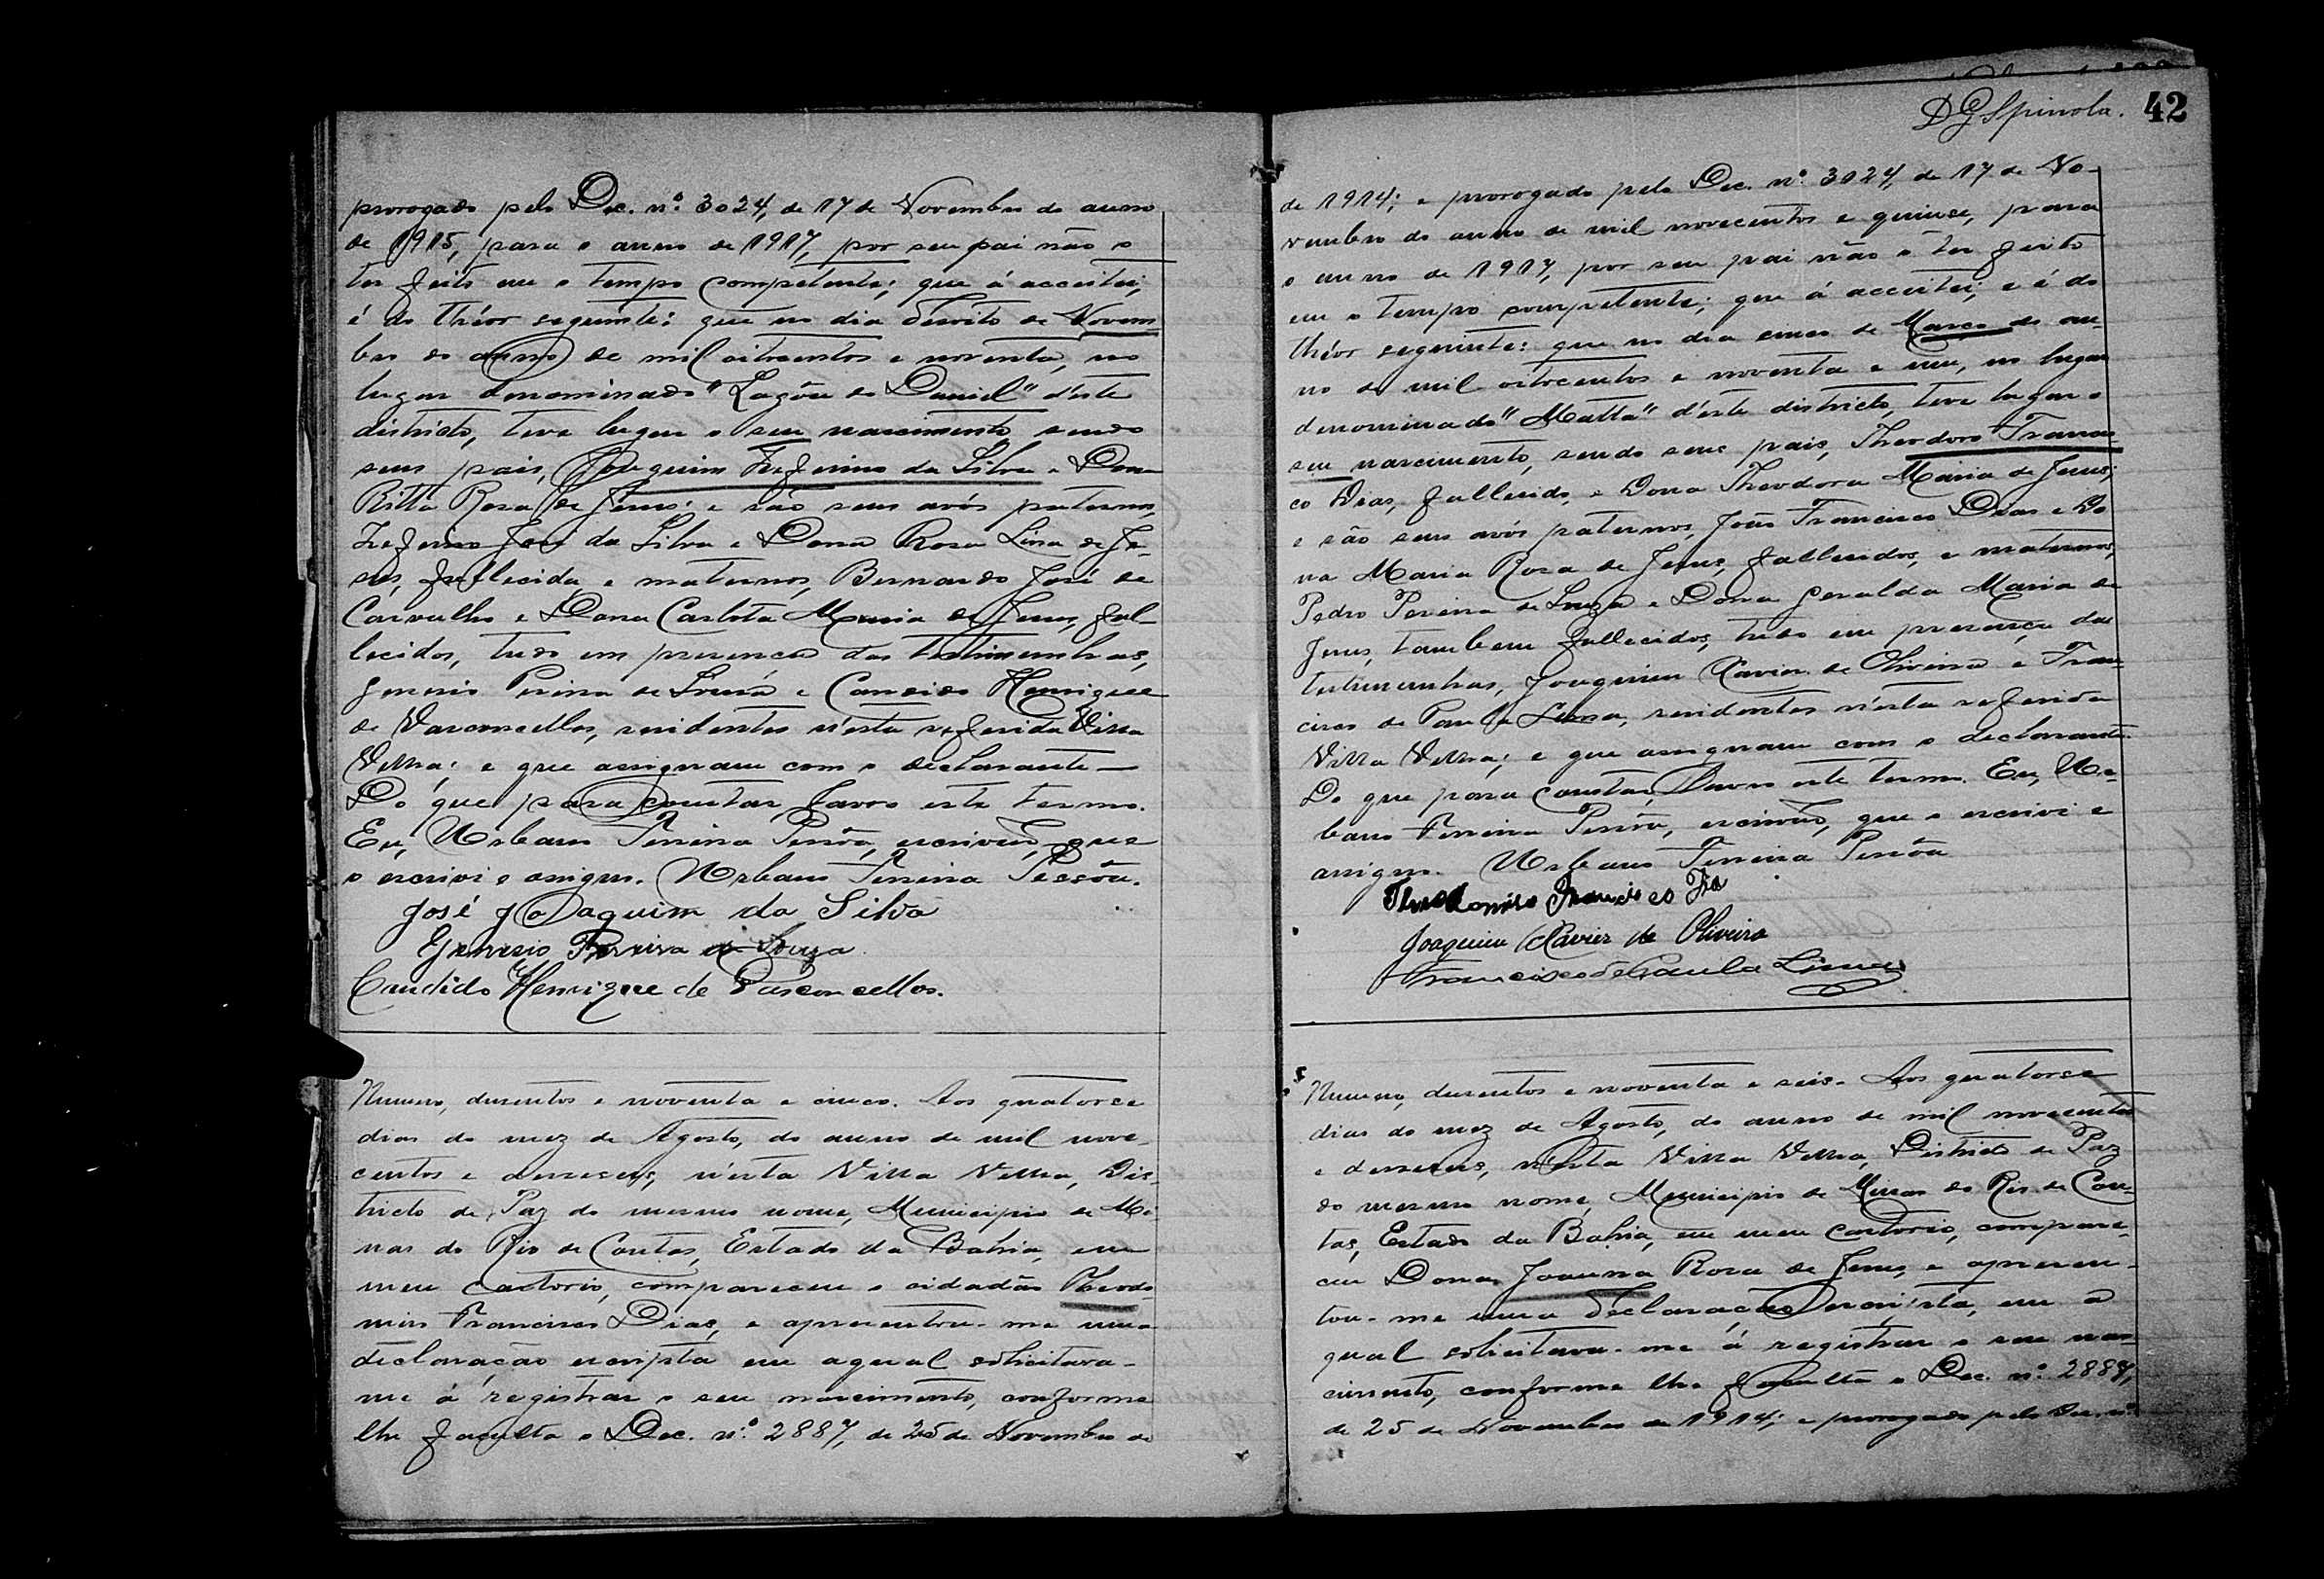 prorogado pelo Dec. nº. 3024, de 17 de Novembro do anno
de 1915, para o anno de 1917, por seu pai não o
ter feito em o tempo competente; que á acceitei,
é do théor seguinte: que no dia desoito de Novem-
bro do anno de mil oitocentos e noventa, no
lugar denominado "Lagôa do Daniel" d'este
districto, teve lugar o seu nascimento, sendo
seus pais, Joaquim Zeferino da Silva e Dona
Ritta Rosa de Jesus; e são seus avós paternos,
Zeferino José da Silva e Dona Rosa Lina de Je-
sus, fallecida, e maternos, Bernardo José de
Carvalho e Dona Carlota Maria de Jesus, fal-
lecidos, tudo em presença das testimunhas,
Genesio Pereira de Souza e Candido Henrique
de Vasconcellos, residentes n'esta referida Villa
Velha; e que assignam com o declarante—
Do que para constar, lavro este termo.
Eu, Urbano Ferreira Pessôa, escrivão, que
o escrivi e assigno. Urbano Ferreira Pessôa.
José Joaquim da Silva
Genesio Pereira de Souza
Candido Henrique de Vasconcellos.
Numero, dusentos e noventa e cinco. Aos quatorse
dias do mez de Agosto, do anno de mil nove-
centos e deseseis, n'esta Villa Velha, Dis-
tricto de Paz do mesmo nome, Municipio de Mi-
nas do Rio de Contas, Estado da Bahia, em
meu cartorio, compareceu o cidadão Theodo
miro Francisco Dias, e apresentou-me uma
declaração escripta em a qual solicitava-
me á registrar o seu nascimento, conforme
lhe faculta o Dec. nº. 2887, de 25 de Novembro de
DGSpinola. 42
de 1914; e prorogado pelo Dec. nº. 3024, de 17 de No-
vembro do anno de mil novecentos e quinse, para
o anno de 1917, por seu pai não o ter feito
em o tempo competente; que á acceitei; e é do
théor seguinte: que no dia cinco de Março do an-
no de mil oitocentos e noventa e um, no lugar
denominado "Matta" d'este districto, teve lugar o
seu nascimento, sendo seus pais, Theodoro Francis
co Dias, fallecido, e Dona Theodora Maria de Jesus;
e são seus avós paternos, João Francisco Dias e Do
na Maria Rosa de Jesus, fallecidos, e maternos,
Pedro Pereira de Souza e Dona Geralda Maria de
Jesus, tambem fallecidos, tudo em presença das
testimunhas, Joaquim Xavier de Oliveira e Fran-
cisco de Paula Lima, residentes n'esta referida
Villa Velha; e que assignam com o declarante.
Do que para constar, lavro este termo. Eu, Ur-
bano Ferreira Pessôa, escrivão, que o escrivi e
assigno. Urbano Ferreira Pessôa
Theodomiro Francisco
Joaquim Xavier de Oliveira
Francisco de Paula Lima
Numero, dusentos e noventa e seis. Aos quatorse
dias do mez de Agosto, do anno de mil novecentos
e desesseis, n'esta Villa Velha, Districto de Paz
do mesmo nome, Municipio de Minas do Rio de Con-
tas, Estado da Bahia, em meu cartorio, compare-
ceu Dona Joanna Rosa de Jesus, e apresen-
tou-me uma declaração escripta, em a
qual solicitava-me á registrar o seu nas-
cimento, conforme lhe faculta o Dec. nº. 2887,
de 25 de Novembro de 1914; e prorogado pelo Dec. nº.